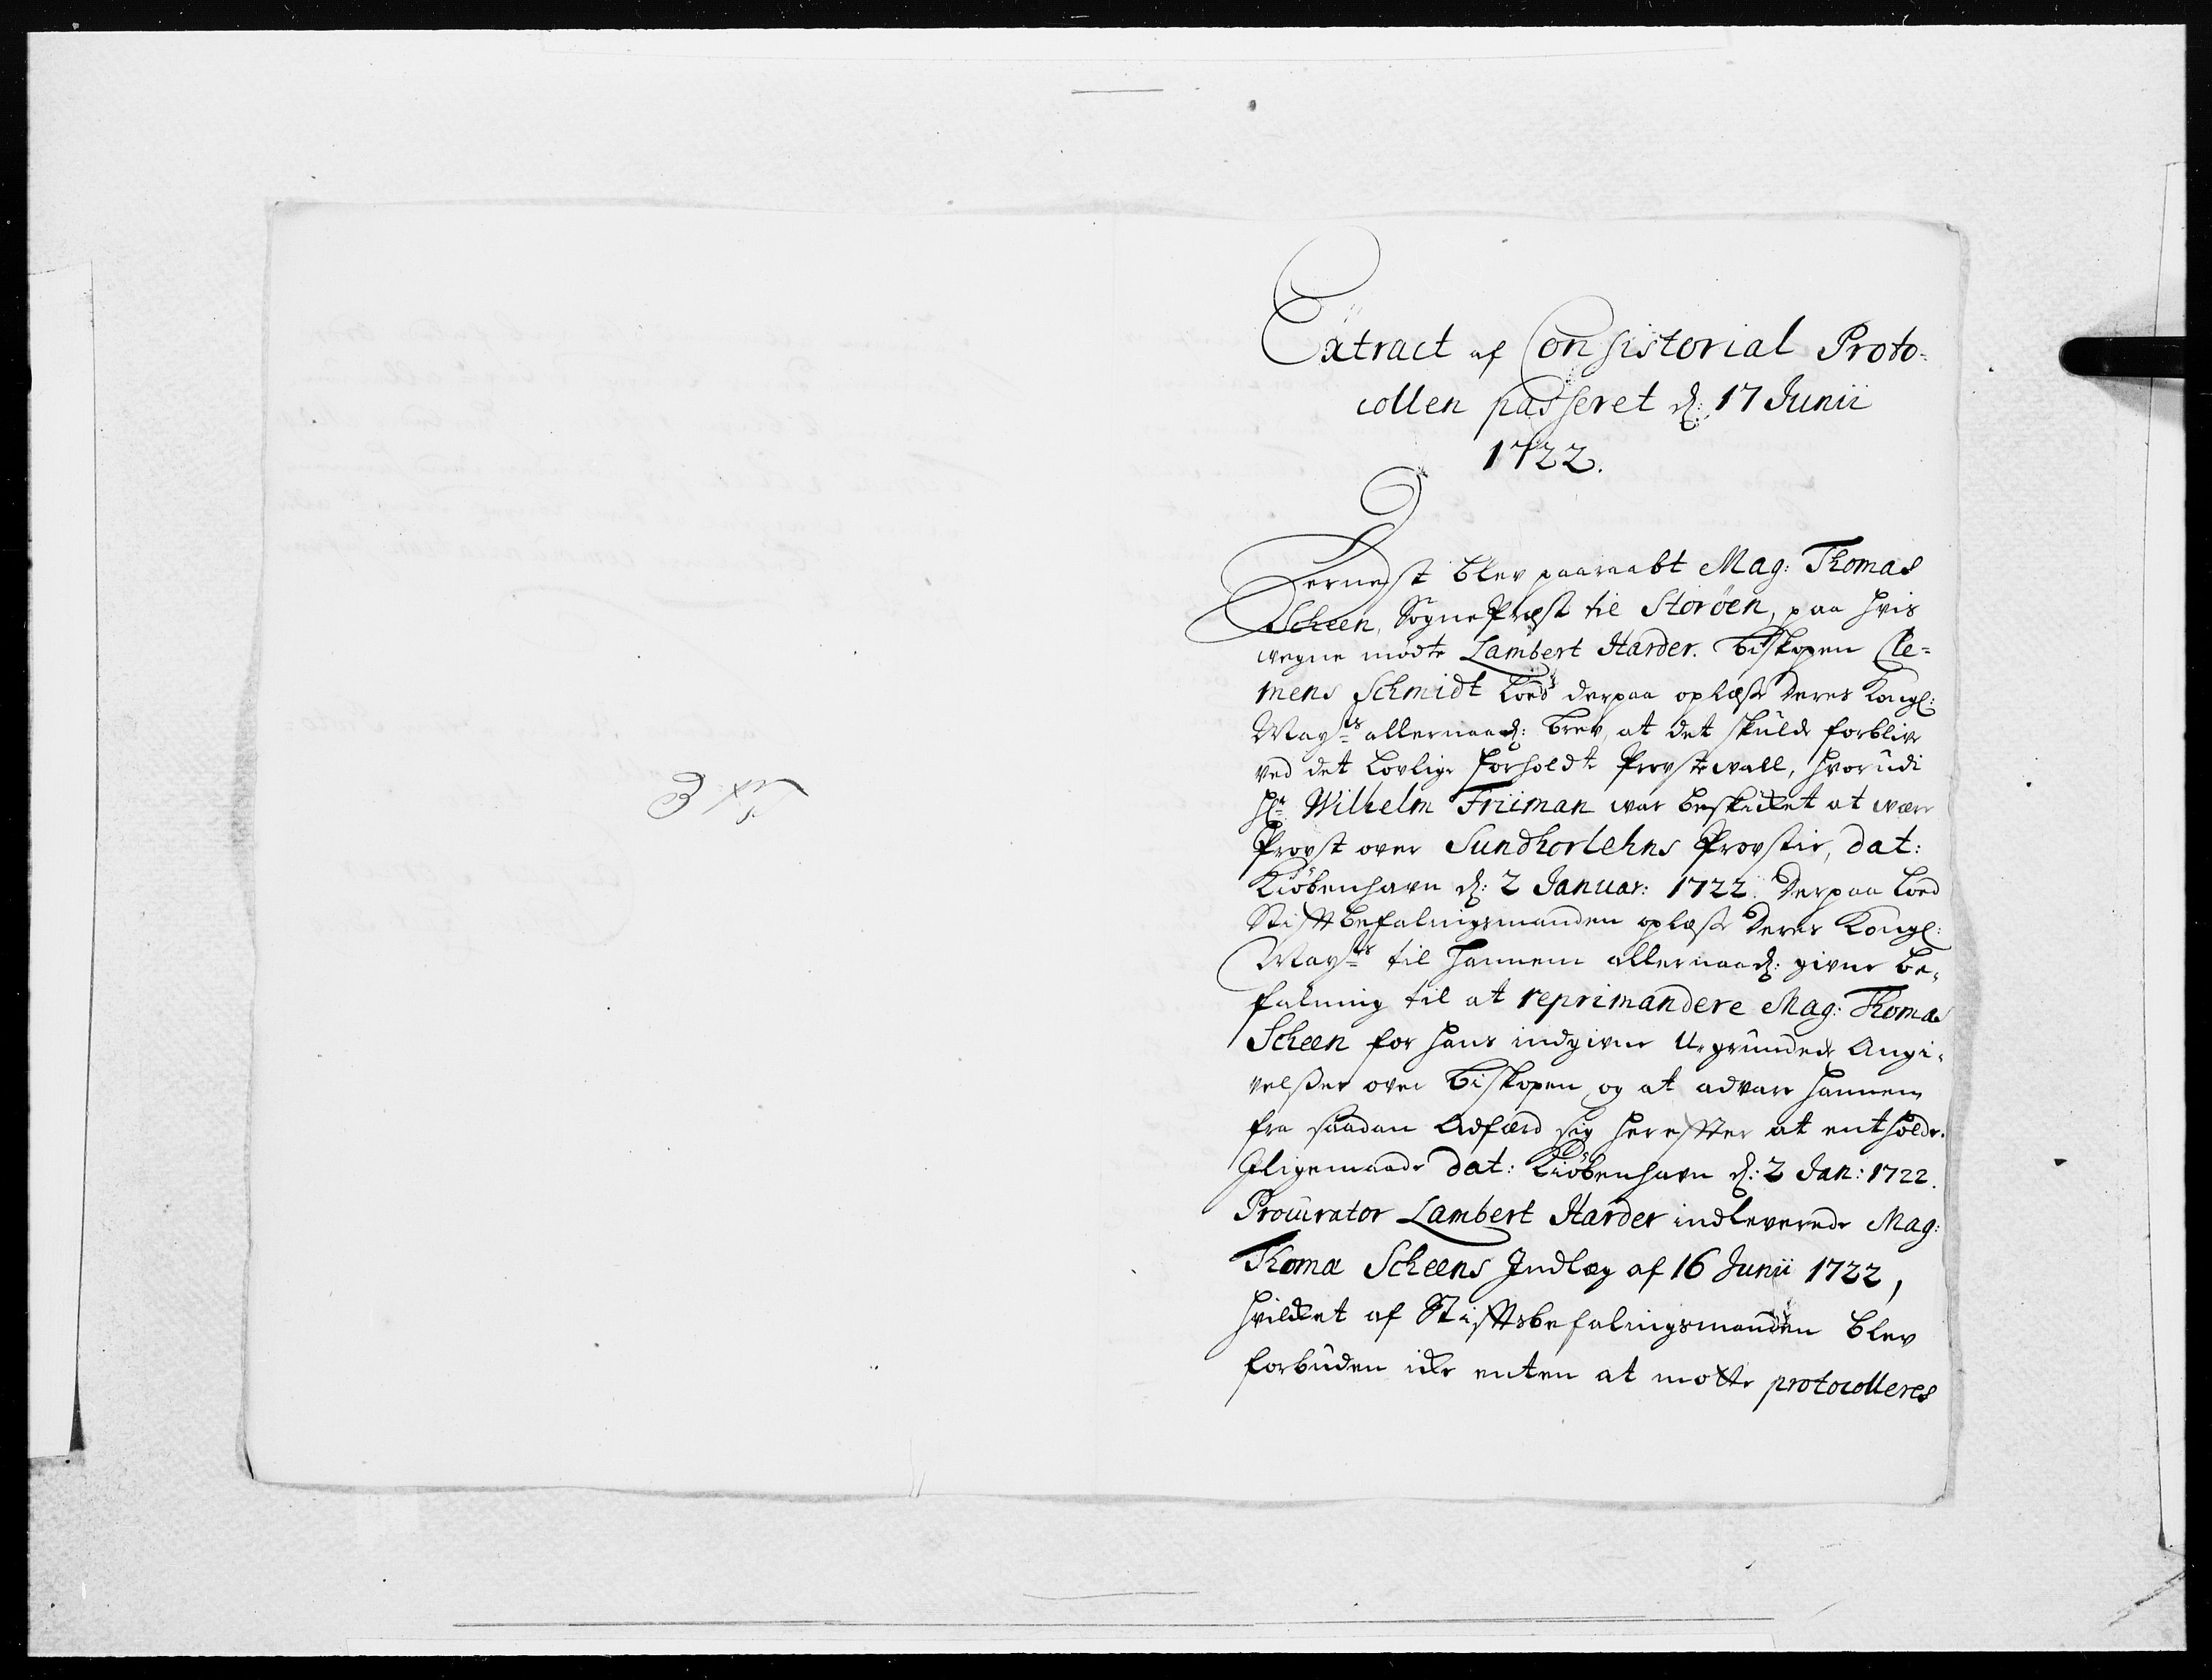 Extract af Consistorial Proto-
collen passeret d: 17 Junii
1722.
Dernest blev paaraabt Mag: Thomas
Scheen, SognePræst til Storøen, paa hvis
vegne mødte Lambert Harder. Biskopen Cle-
mens Schmidt loed derpaa oplæse Deres Kongl:
Mayts allernaad: brev, at det skulde forblive
ved det lovlige forholdte Provstevall, hvorudi
Hr Wilhelm Friiman var beskicket at være
Provst over Sundhorlehns Provstie, dat:
Kiøbenhavn d: 2 Januar: 1722. Derpaa loed
Stiftbefalingsmanden oplæse Deres Kongl:
Mayts til hannem allernaad: givne be-
faling til at reprimandere Mag: Thomas
Scheen for hans indgivne Ugrundede Angi-
velsser over Biskopen, og at advare hannem
fra saadan Adfærd sig herefter at entholde.
Iligemaade dat: Kiøbenhavn d: 2 Jan: 1722.
Procurator Lambert Harder indleverede Mag:
Thomæ Scheens Indlæg af 16 Junii 1722,
hvilcket af Stiftsbefalingsmanden blev
forbuden icke enten at motte protocolleres